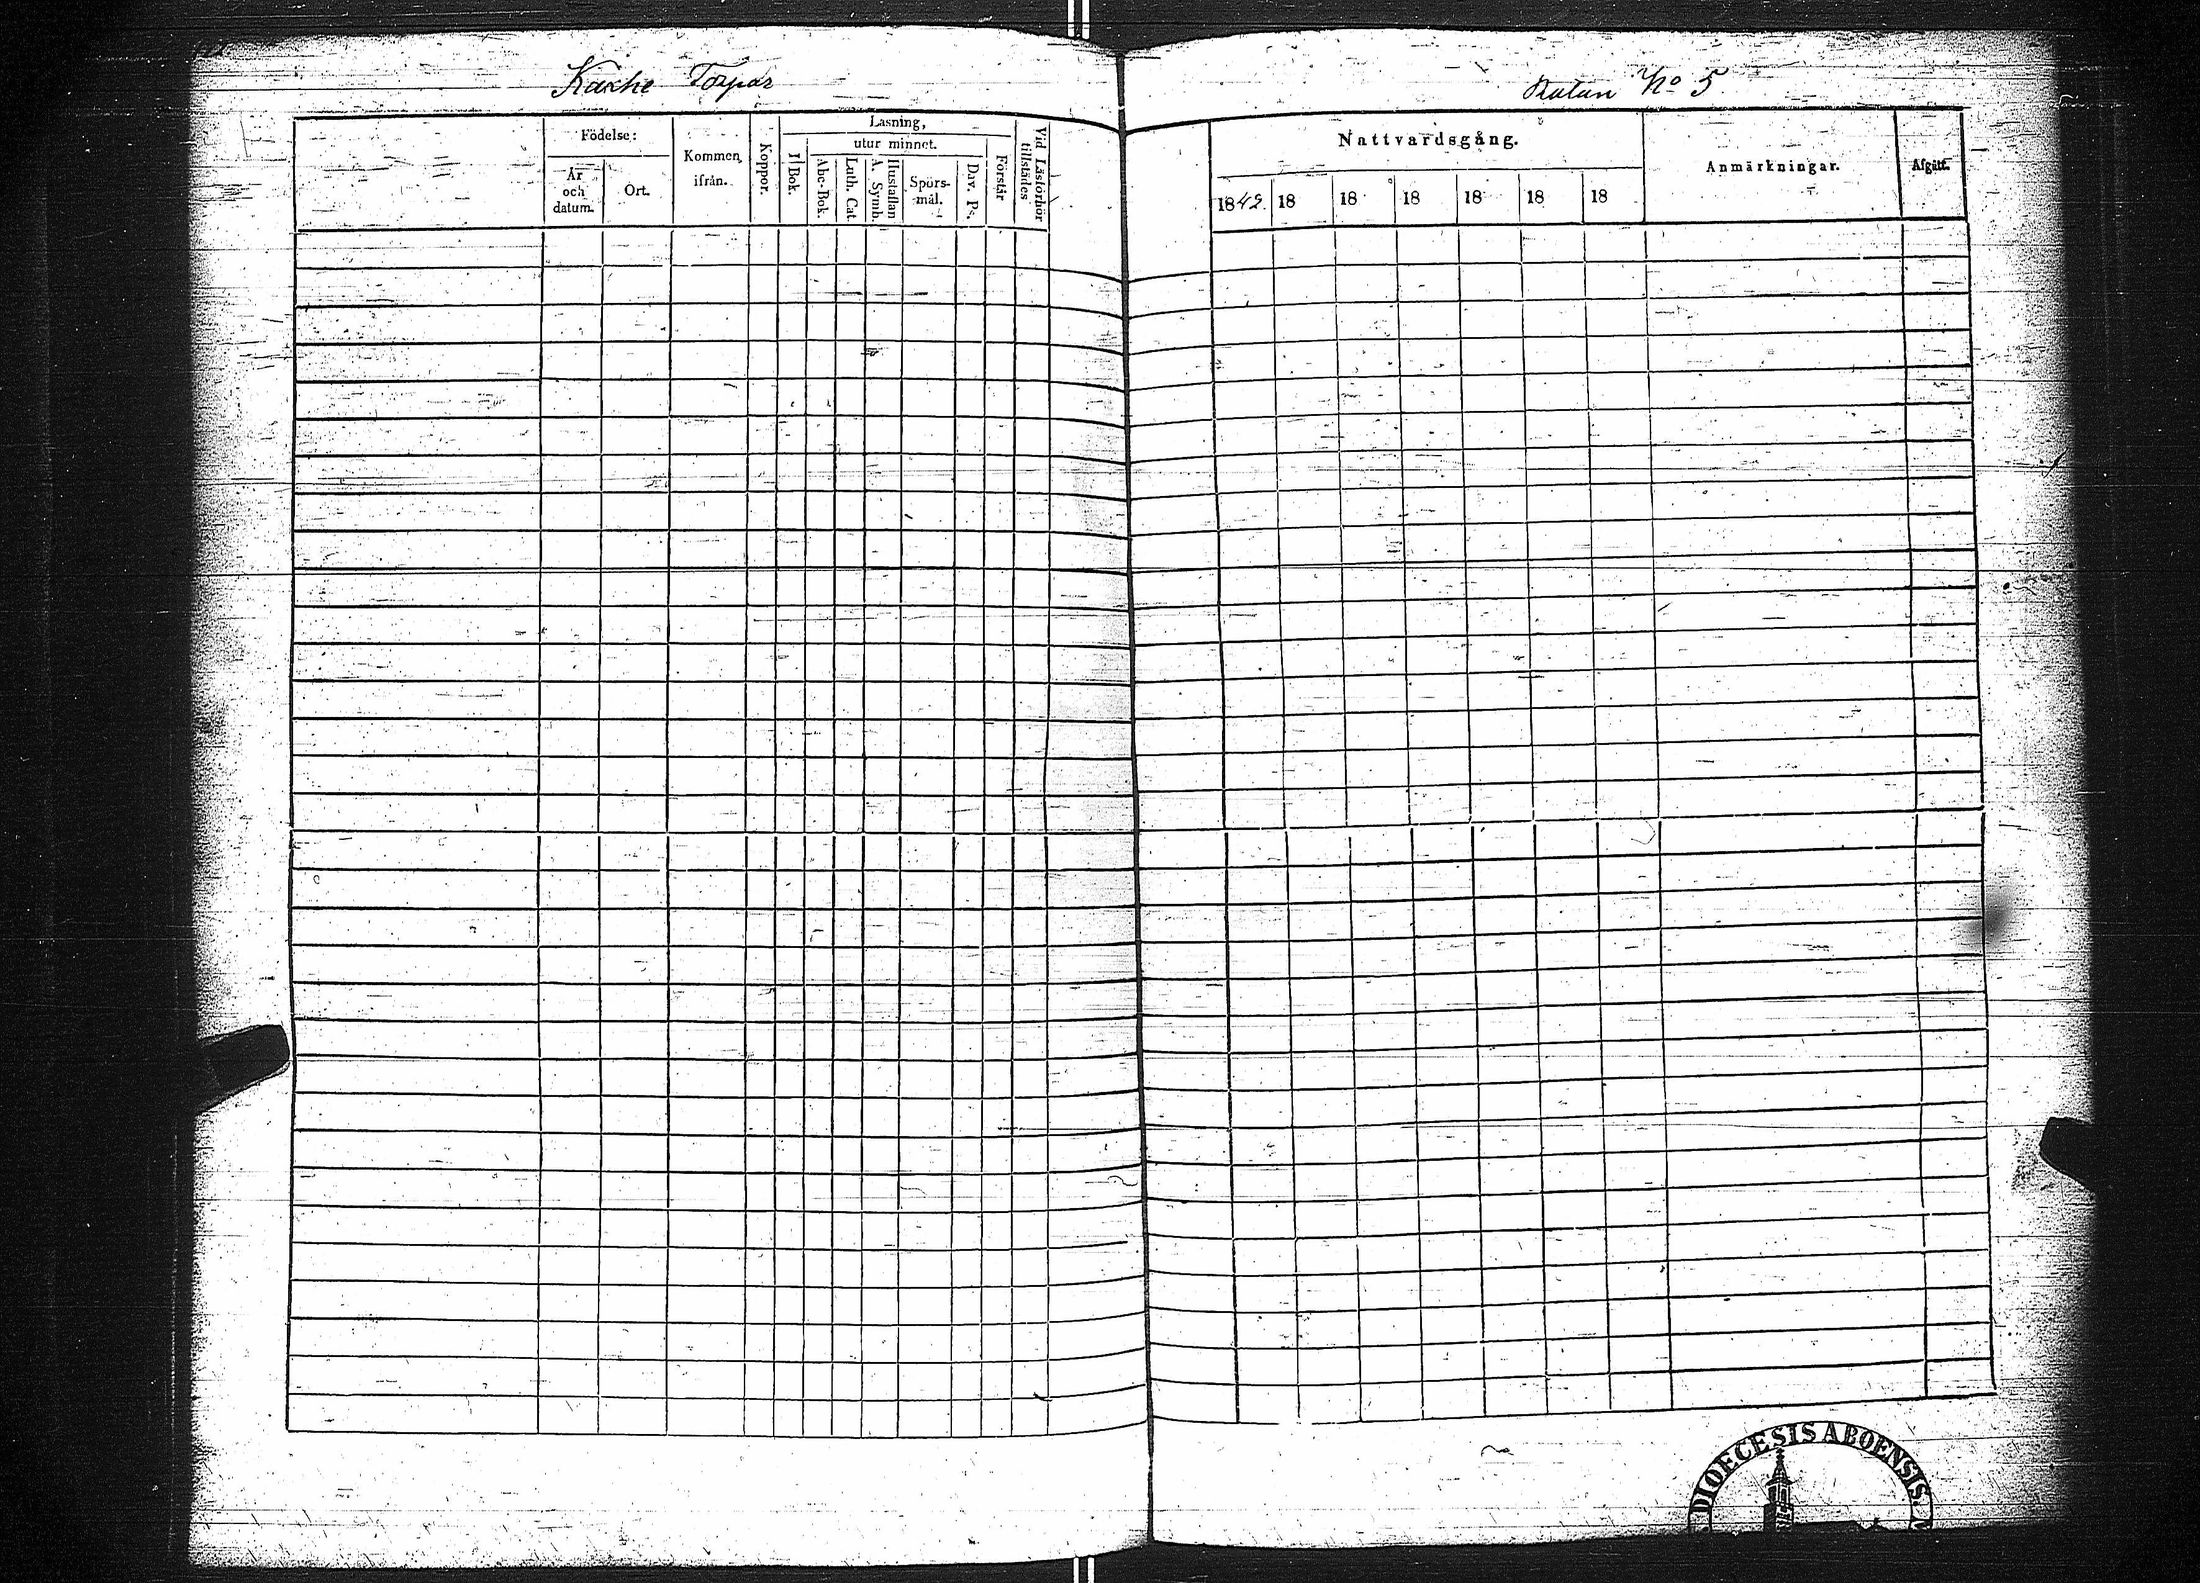 Torpar
No 5
Födelse:
År och datum.
Ort.
Kommen ifrån.
Koppor.
Läsning,
I Bok.
utur minnet.
Abc-Bok.
Luth. Cat.
Hustaflan
A. Symb.
Spörs-mål.
Dav. Ps.
Förstår
Vid Läsförhör tillstädes
Nattvardsgång.
1842. 18 18 18 18 18 18
Anmärkningar.
Afgått.
DIOECESIS ABOENSIS.